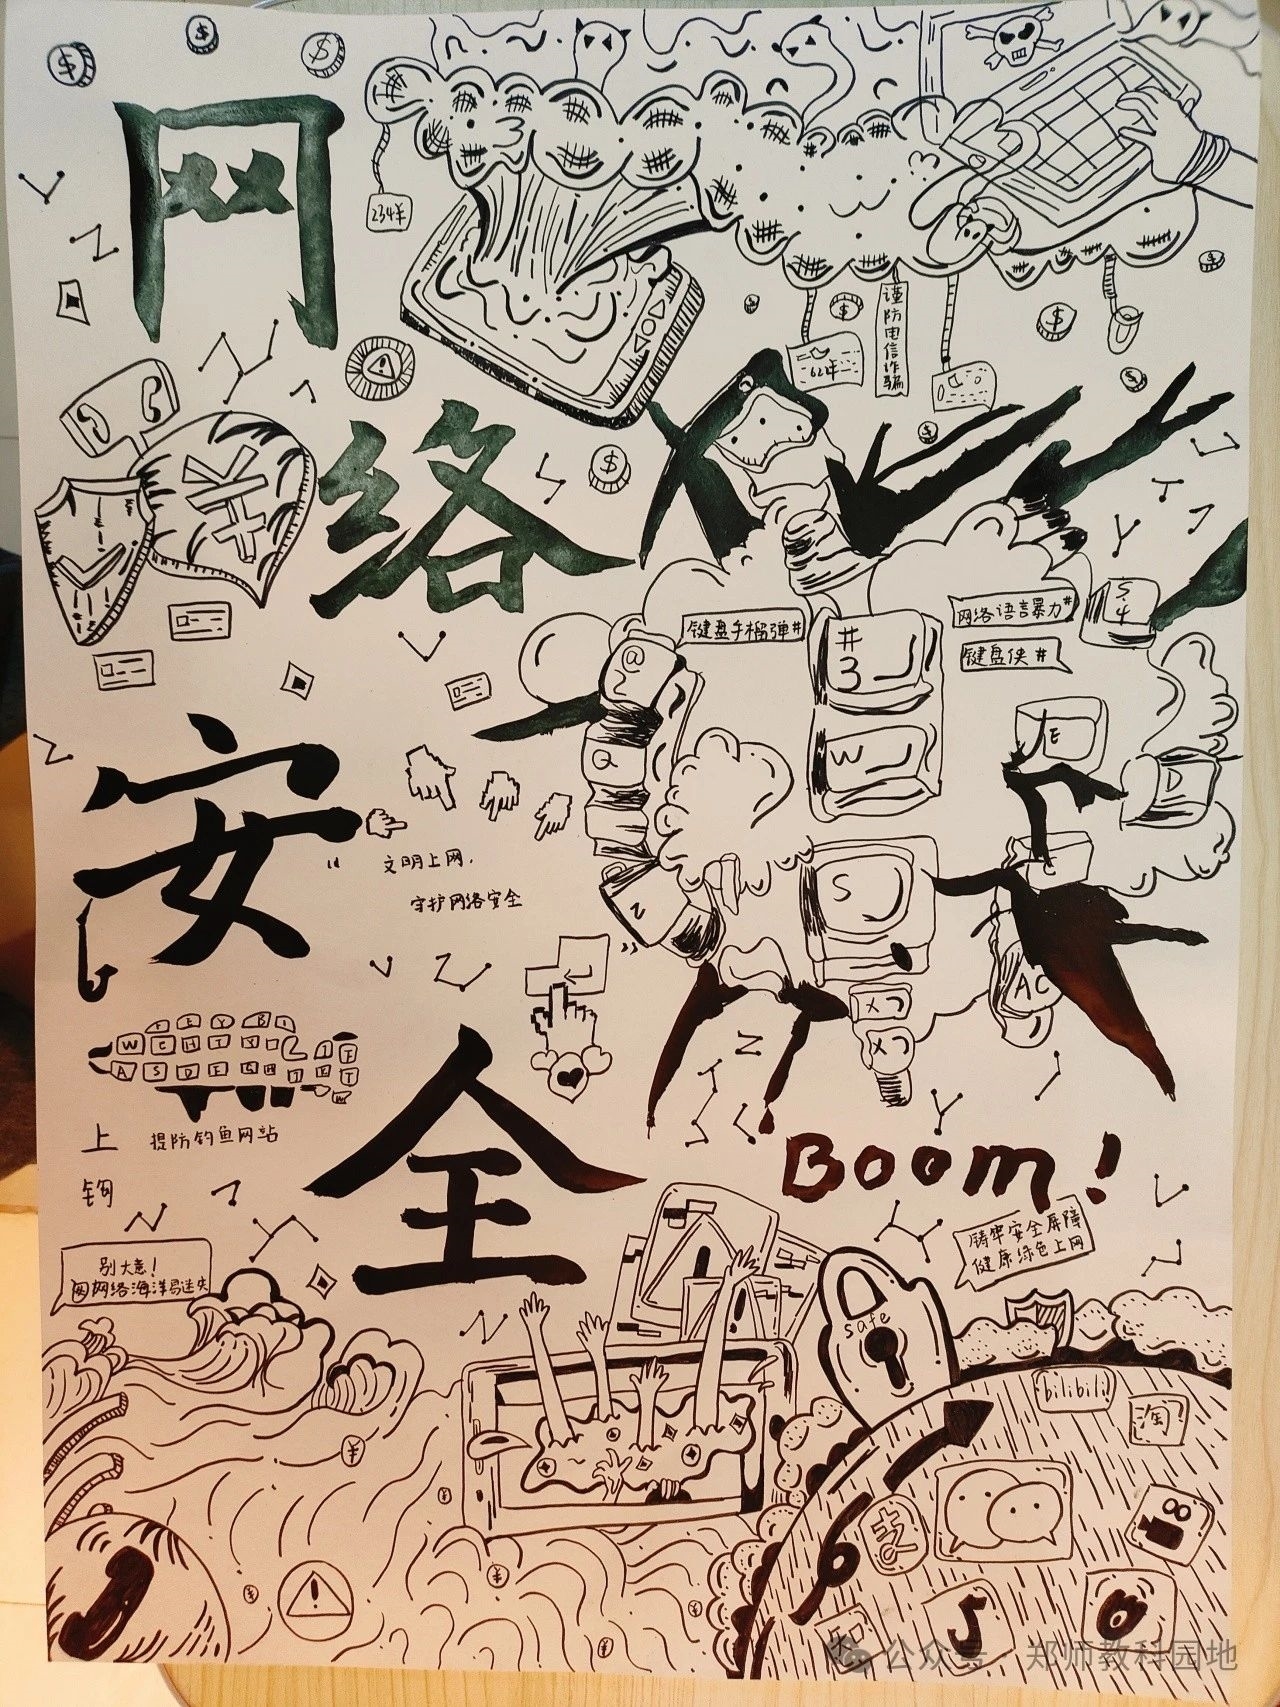 网
络
安
全
234年
谨防电信诈骗
62年
键盘手榴弹#
网络语言暴力#
键盘侠#
@
2
#
3
S
4
Q
W
E
D
S
C
Z
AC
X
X
“文明上网，
守护网络安全”
T E Y B I
W C H I Y
A S D E G H
提防钓鱼网站
上
钩
Boom!
铸牢安全屏障
健康绿色上网
别大意!
因网络海洋易迷失
safe
bilibili
淘
支
公众号·郑师教科园地